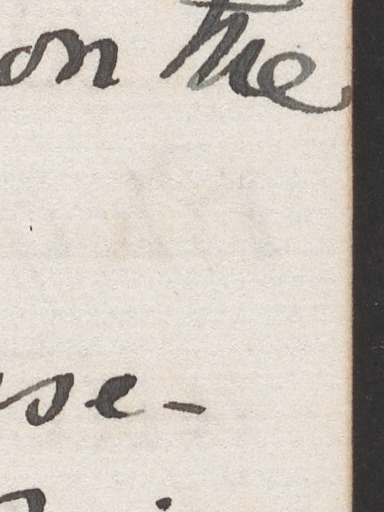 on the
se-